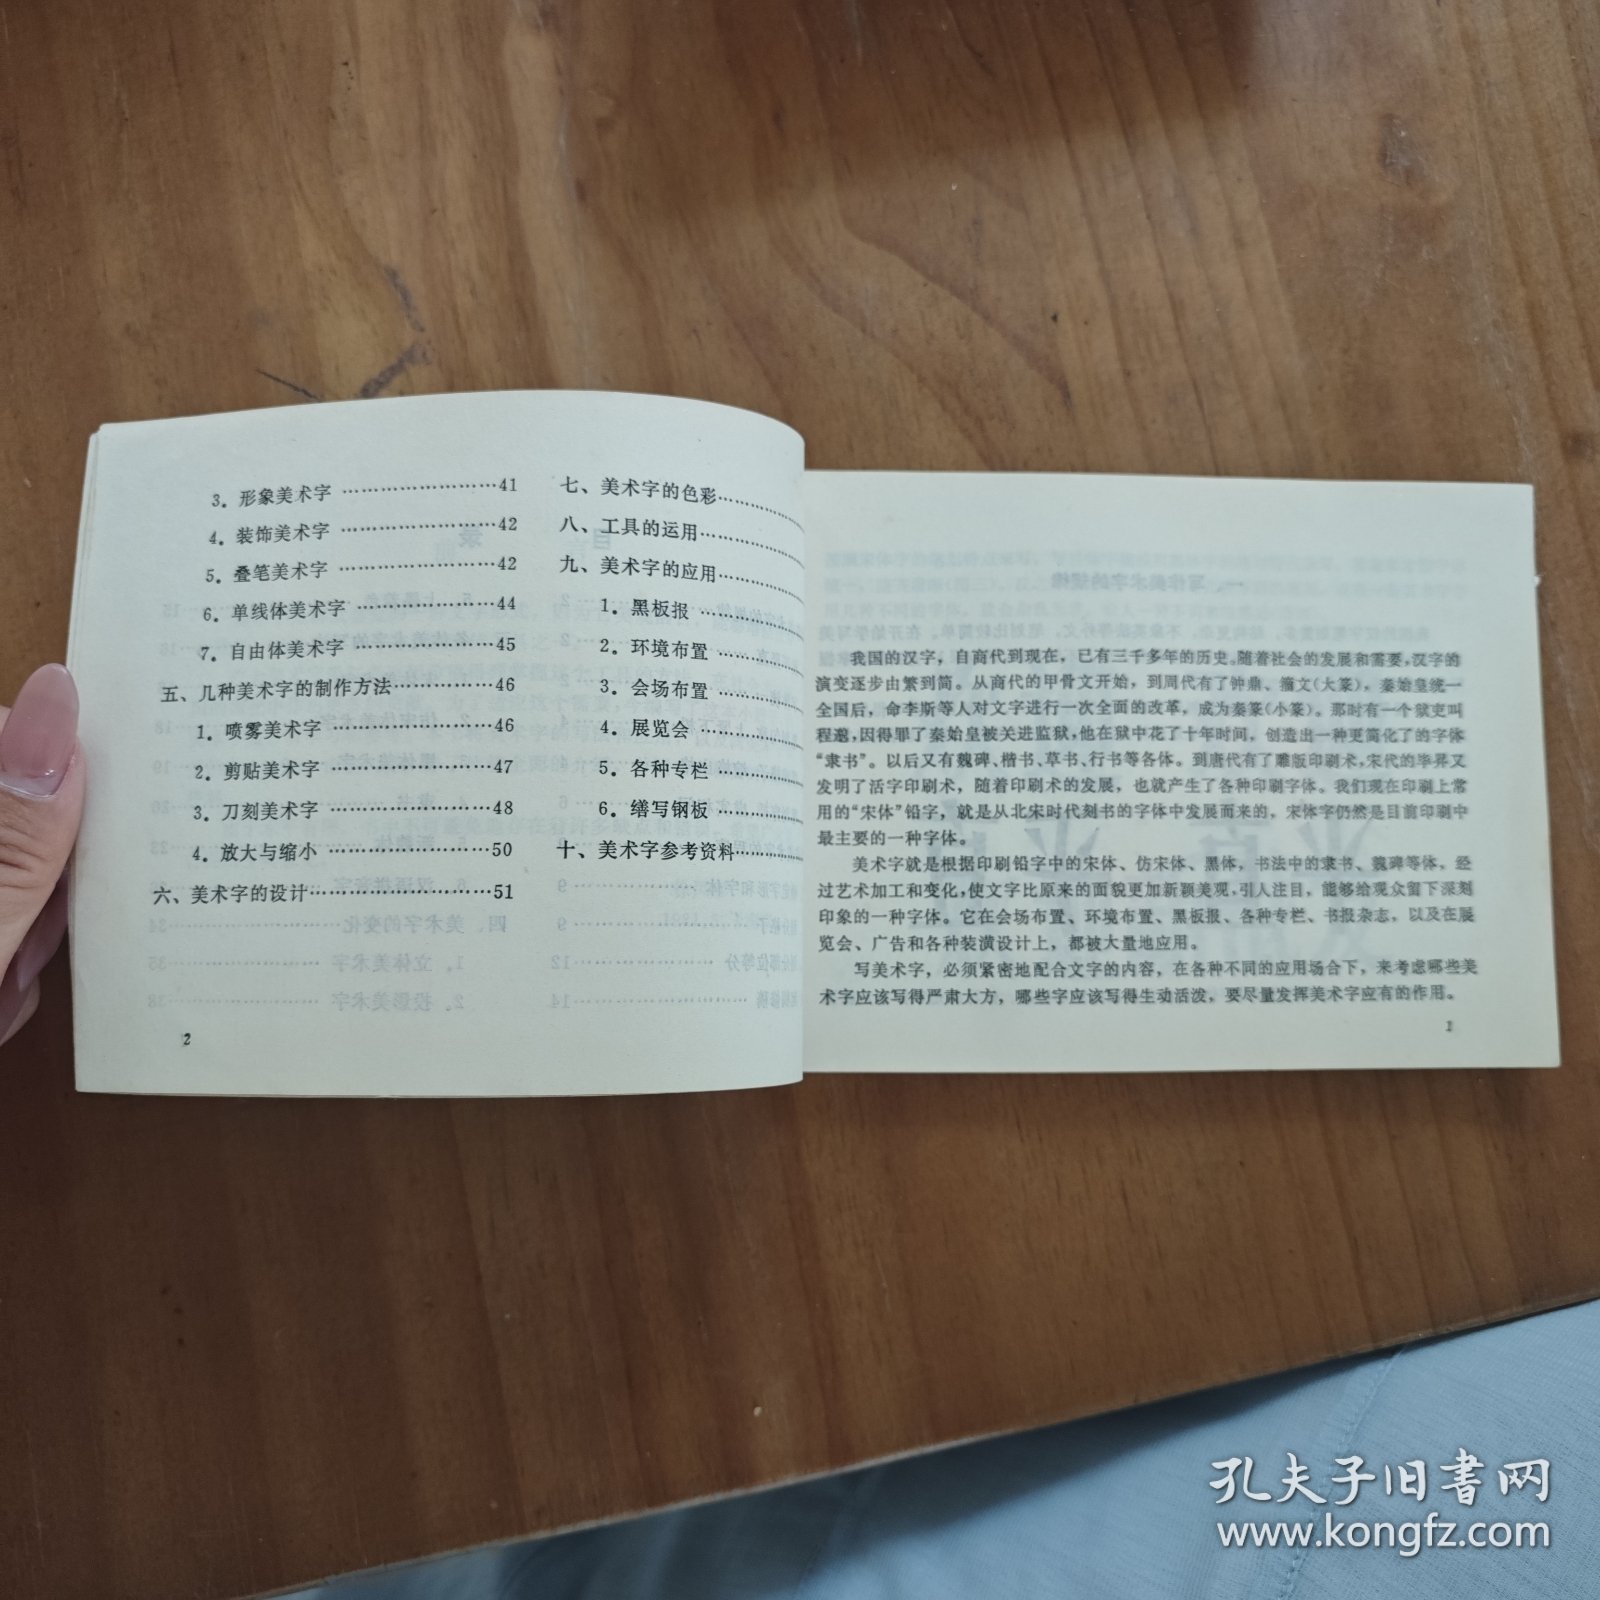 3. 形象美术字 ……………………41
4. 装饰美术字 ……………………42
5. 叠笔美术字 ……………………42
6. 单线体美术字 …………………44
7. 自由体美术字 …………………45
五、几种美术字的制作方法……………46
1. 喷雾美术字 ……………………46
2. 剪贴美术字 ……………………47
3. 刀刻美术字 ……………………48
4. 放大与缩小 ……………………50
六、美术字的设计………………………51
2
七、美术字的色彩…………
八、工具的运用……………
九、美术字的应用…………
1. 黑板报 ……………
2. 环境布置 …………
3. 会场布置 …………
4. 展览会 ……………
5. 各种专栏 …………
6. 缮写钢板 …………
十、美术字参考资料………
我国的汉字，自商代到现在，已有三千多年的历史。随着社会的发展和需要，汉字的
演变逐步由繁到简。从商代的甲骨文开始，到周代有了钟鼎、籀文(大篆)，秦始皇统一
全国后，命李斯等人对文字进行一次全面的改革，成为秦篆(小篆)。那时有一个狱吏叫
程邈，因得罪了秦始皇被关进监狱，他在狱中花了十年时间，创造出一种更简化了的字体
“隶书”。以后又有魏碑、楷书、草书、行书等各体。到唐代有了雕版印刷术，宋代的毕昇又
发明了活字印刷术，随着印刷术的发展，也就产生了各种印刷字体。我们现在印刷上常
用的“宋体”铅字，就是从北宋时代刻书的字体中发展而来的，宋体字仍然是目前印刷中
最主要的一种字体。
美术字就是根据印刷铅字中的宋体、仿宋体、黑体，书法中的隶书、魏碑等体，经
过艺术加工和变化，使文字比原来的面貌更加新颖美观，引人注目，能够给观众留下深刻
印象的一种字体。它在会场布置、环境布置、黑板报、各种专栏、书报杂志，以及在展
览会、广告和各种装潢设计上，都被大量地应用。
写美术字，必须紧密地配合文字的内容，在各种不同的应用场合下，来考虑哪些美
术字应该写得严肃大方，哪些字应该写得生动活泼，要尽量发挥美术字应有的作用。
1
孔夫子旧书网
www.kongfz.com